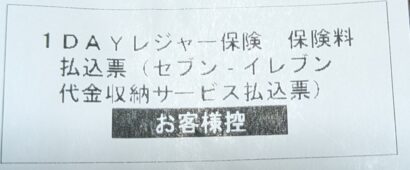 1DAYレジャー保険 保険料
払込票(セブン-イレブン
代金収納サービス払込票)
お客様控